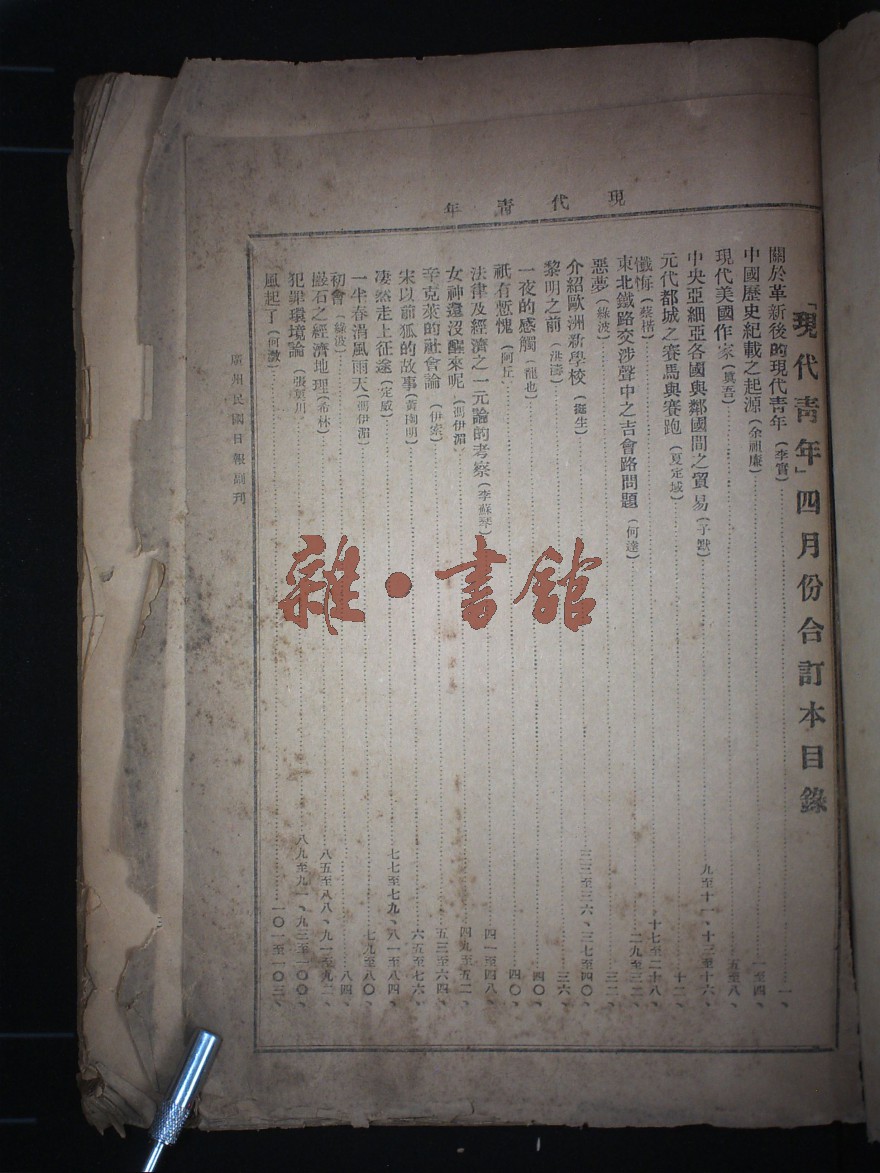 現代青年
「現代青年」四月份合訂本目錄
關於革新後的現代青年(李實)……一、
中國歷史紀載之起源(余祖康)……一至四、
現代美國作家(真吾)……五至八、
中央亞細亞各國與鄰國間之貿易(子默)……九至十一、十三至十六、
元代都城之賽馬與賽跑(夏定域)……十二、
懺悔(蔡楷)……十七至二十八、
東北鐵路交涉聲中之吉會路問題(何達)……二九至三二、
惡夢(綠波)……三二、
介紹歐洲新學校(誕生)……三三至三六、三七至四〇、
黎明之前(洪濤)……三六、
一夜的感觸(龍也)……四〇、
祇有慙愧(阿丘)……四〇、
法律及經濟之一元論的考察(李蘇琴)……四一至四八、
女神還沒醒來呢(馮伊湄)……四九至五二、
辛克萊的社會論(伊索)……五三至六四、
宋以前狐的故事(黃陶明)……六五至七六、
凄然走上征途(定威)……七七至七九、八一至八四、
一半春消風雨天(馮伊湄)……七九至八〇、
初會(綠波)……八四、
巖石之經濟地理(希林)……八五至八八、九一至九二、
犯罪環境論(張原川)……八九至九一、九三至一〇〇、
風起了(何漱)……一〇一至一〇三、
廣州民國日報副刊
雜·書館